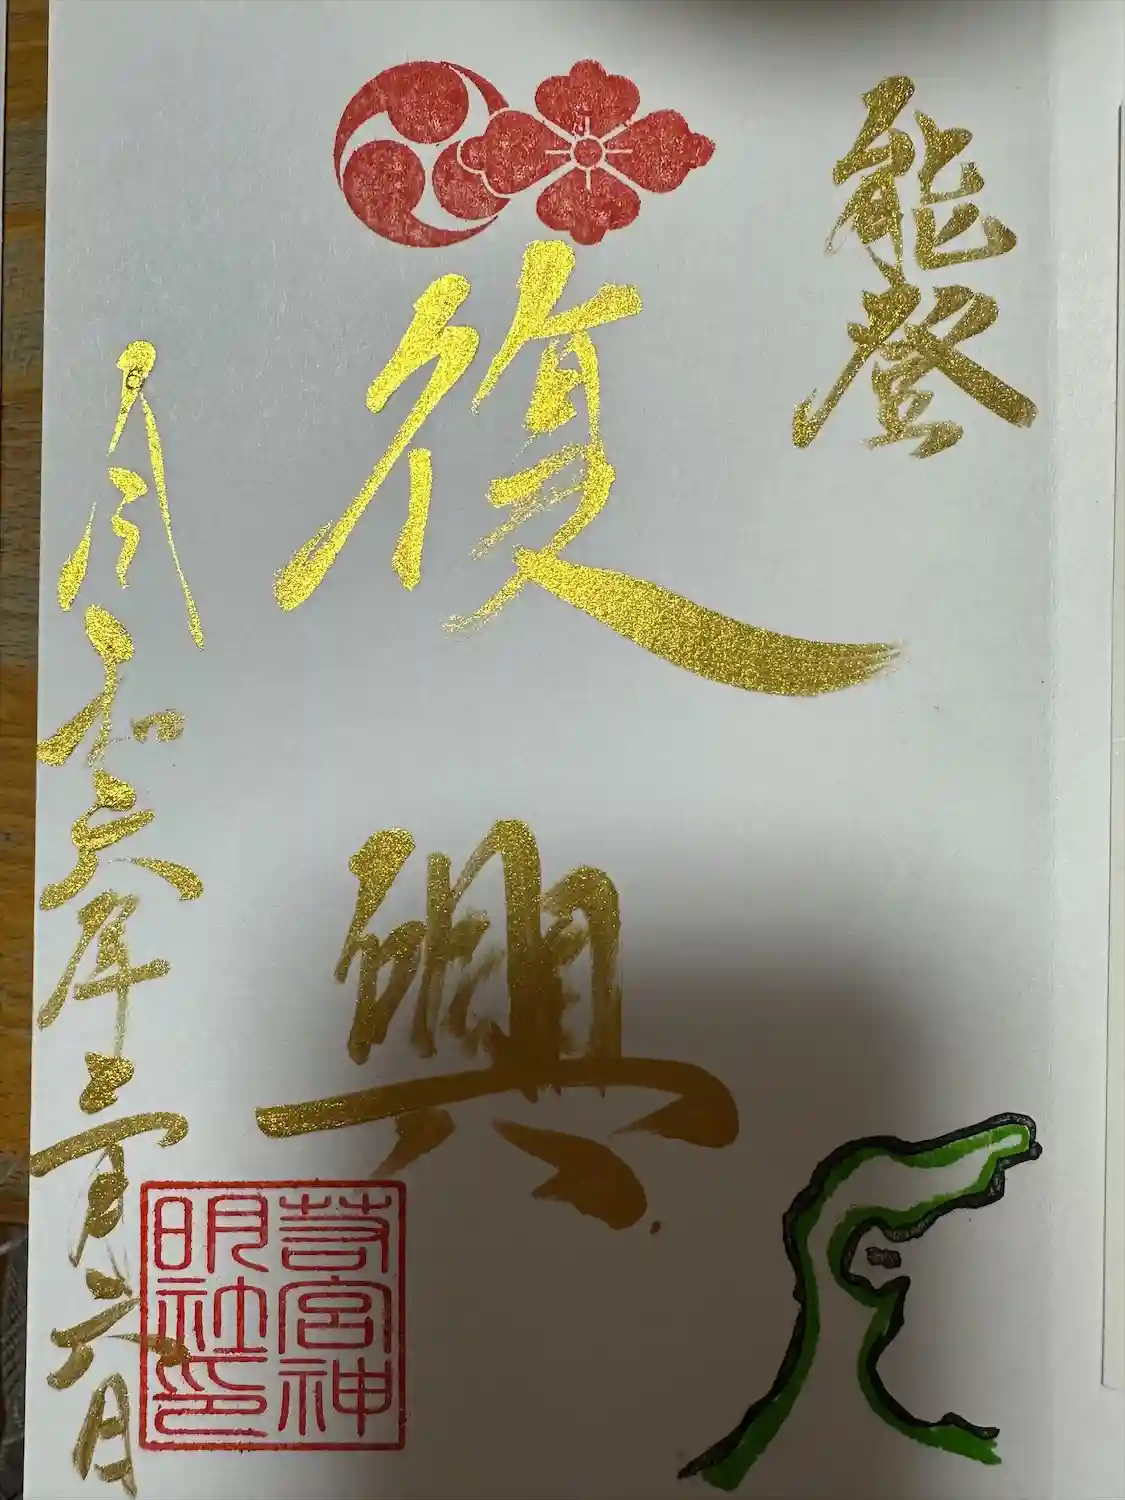 能登
復興
令和六年 六月
若宮神明社印